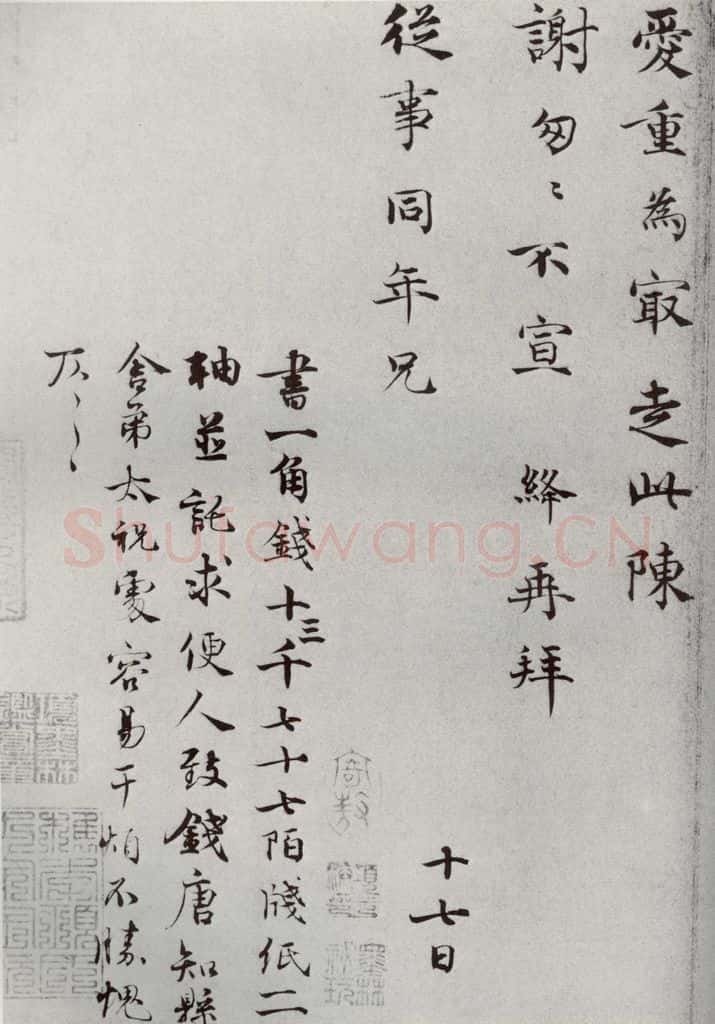 愛重為㝡走此陳
謝匆〻不宣 絳再拜
從事同年兄
十七日
書一角錢十三千七十七陌牋紙二
軸並託求便人致錢唐知縣
舍弟太祝處容易干煩不勝愧
仄〻〻
Shufawang.CN